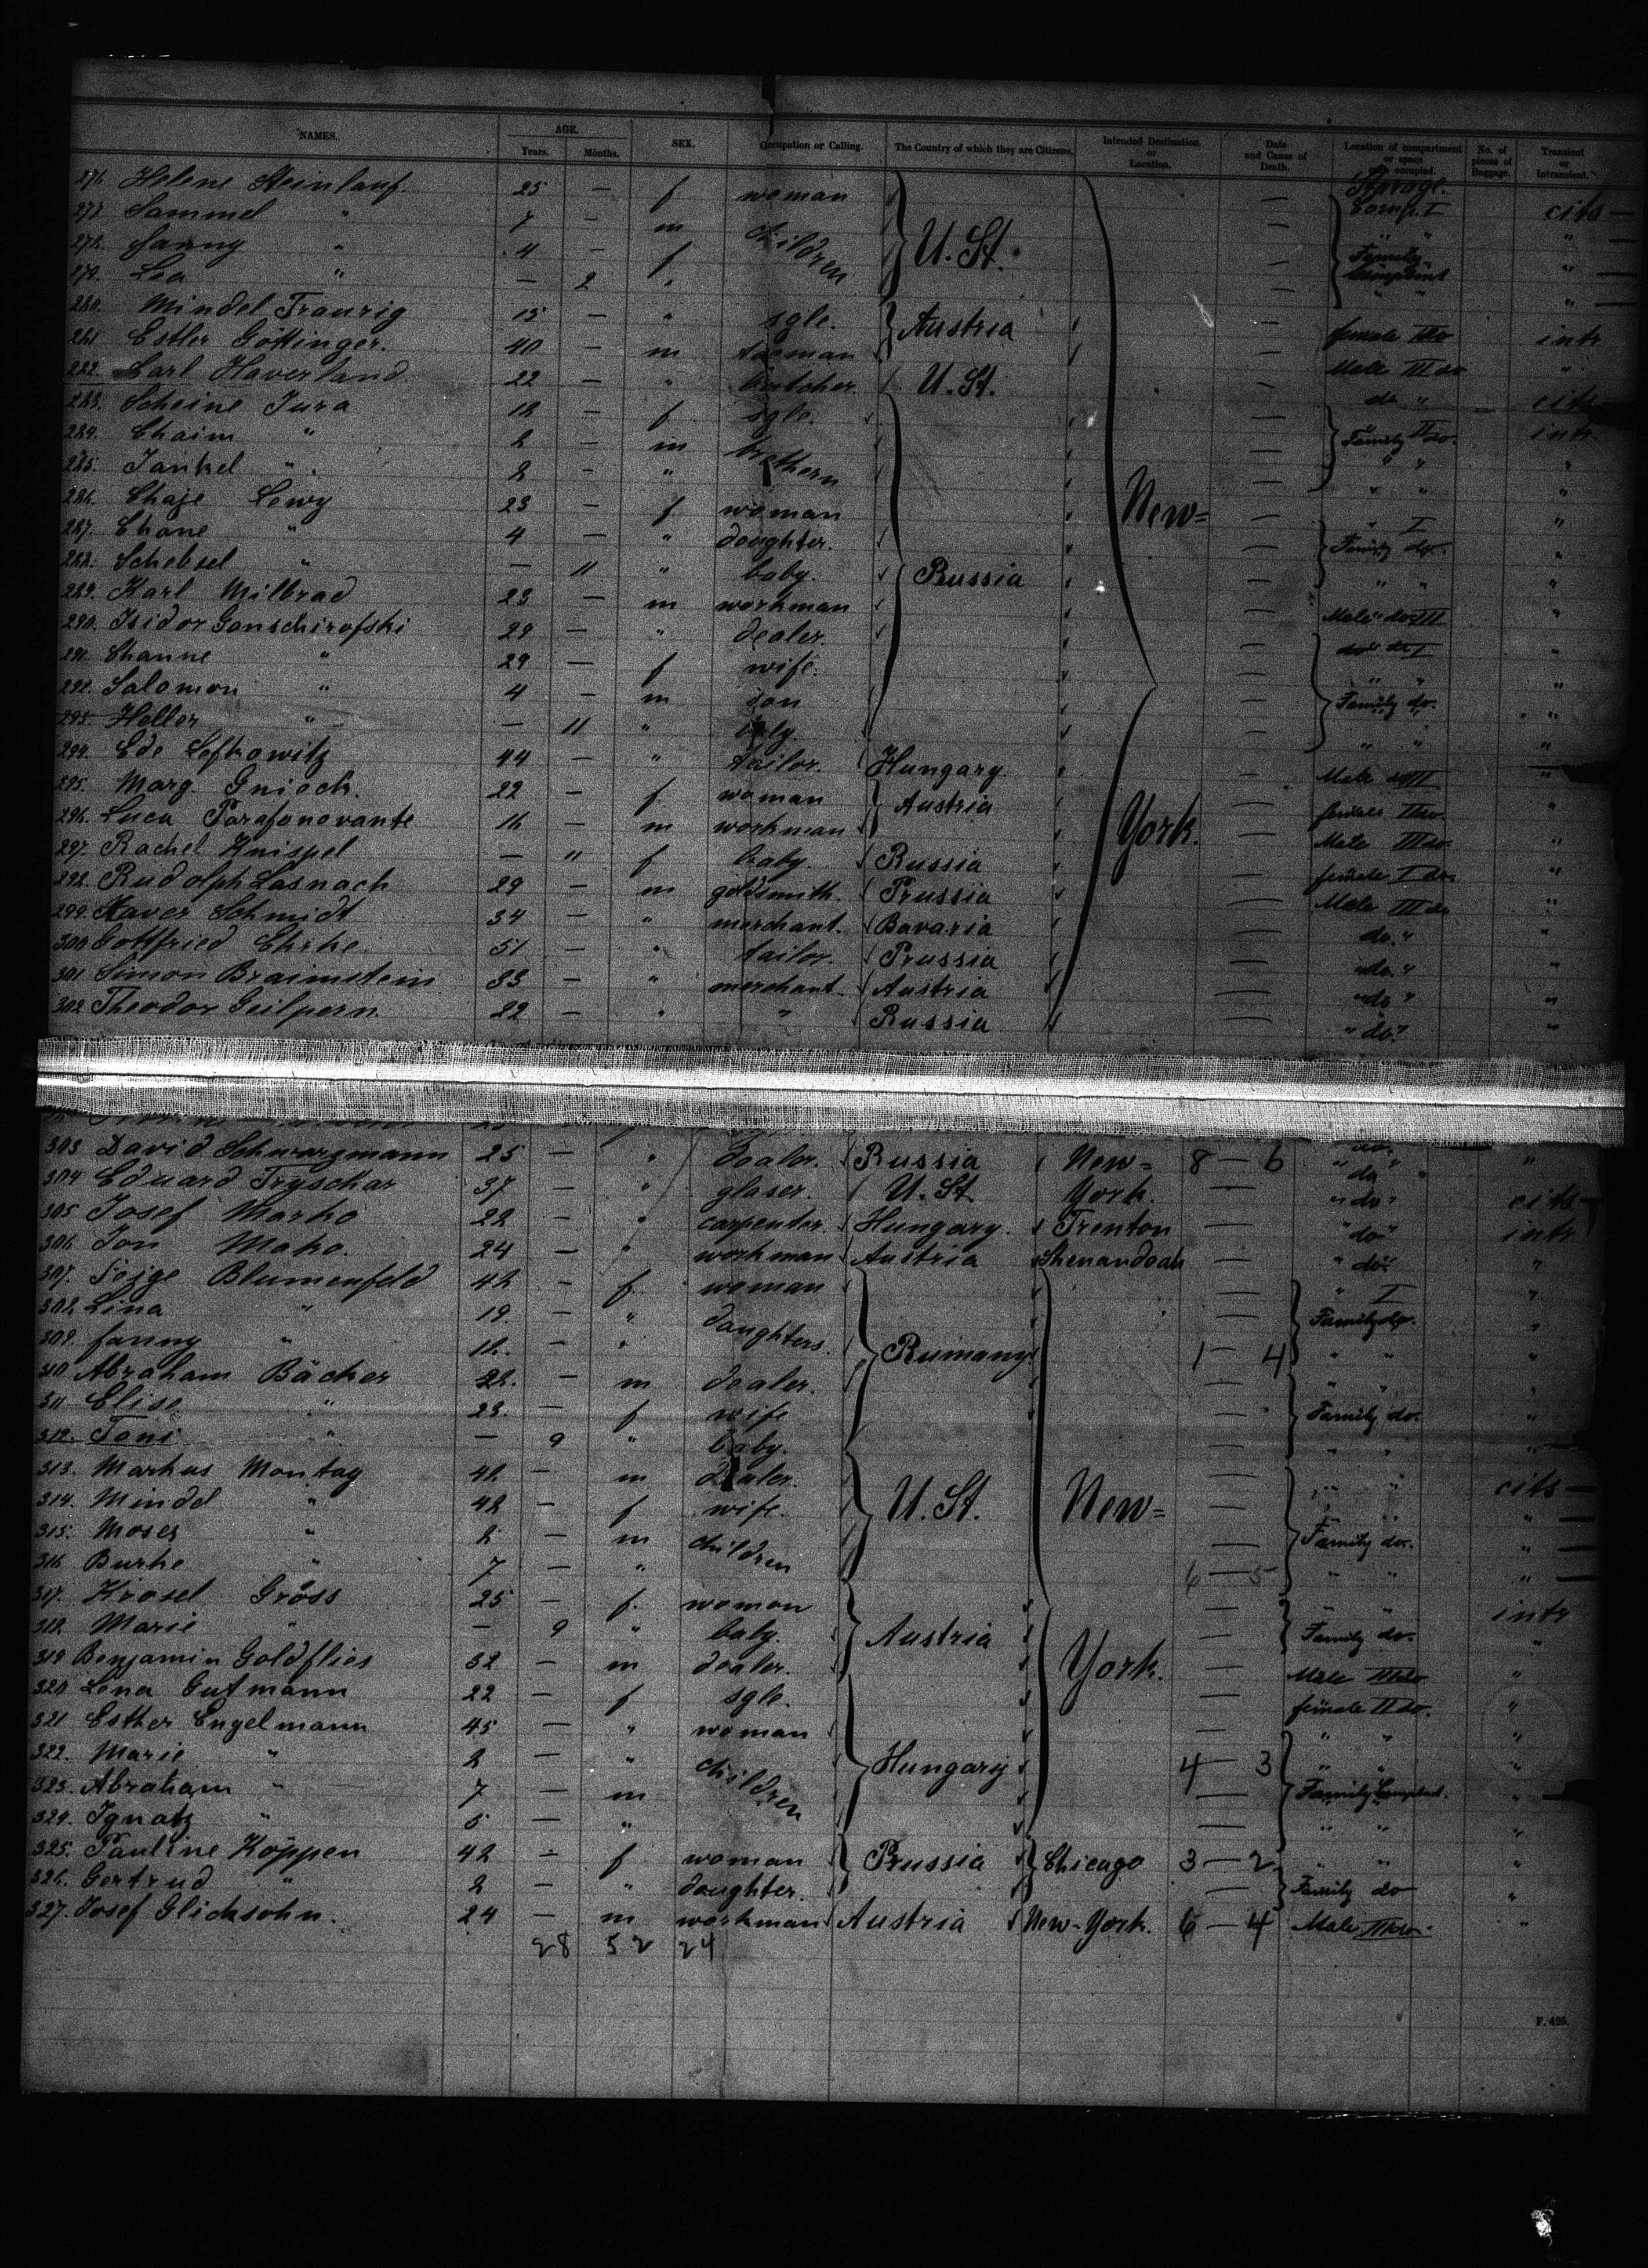 NAMES. AGE. SEX. Occupation or Calling. The Country of which they are Citizens. Intended Destination or Location. Date and Cause of Death. Location of compartment or space occupied. No. of pieces of Baggage. Transient or Intransient.
Years. Months.
276. Helene Steinlauf. 25 — f woman — Steerage.
277. Sammel " 7 — m children — Comp. I cits —
278. Fanny " 4 — f U. St. — " " " —
279. Lea " — 2 " — Family Compliment " —
280. Mindel Traurig 15 — " sgle. Austria — " " " —
281. Estler Göttinger. 40 — m — female II do intr
282. Carl Haverland. 22 — " butcher. U. St. — Male III do "
283. Scheine Jura 18 — f sgle. — do " cits
284. Chaim " 2 — m brethern — Family II do. intr
285. Jankel " 2 — " — " " "
286. Chaje Lewy 23 — f woman New= — " " "
287. Chane " 4 — " doughter. — " I "
288. Schebsel " — 11 " baby. Russia — Family do. "
289. Karl Milbrad 23 — m workman — " " "
290. Isidor Ganschirofski 29 — " dealer. — Male do III "
291. Channe " 29 — f wife. — do I "
292. Salomon " 4 — m son — " " "
293. Heller " — 11 " baby. — Family do. "
294. Ede Lefkowitz 44 — " tailor. Hungary. — " " "
295. Marg. Gniech. 22 — f woman Austria — Male do III "
296. Luca Parafonovante 16 — m workman York. — female II do. "
297. Rachel Knispel — 11 f baby. Russia — Male III do. "
298. Rudolph Lasnach 29 — m goldsmith. Prussia — female I do. "
299. Xaver Schmidt 34 — " merchant. Bavaria — Male III do "
300 Gottfried Ehrke 51 — " tailor. Prussia — do. " "
301 Simon Braimstein 33 — " merchant. Austria — " do " "
302 Theodor Geilpern. 22 — " " Russia — " do " "
303 David Schwarzmann 25 — " dealer. Russia New= 8 — 6 " do " "
304 Eduard Tryschar 37 — " glaser. U. St York. — " do " cits —
305 Josef Marko 22 — " carpenter. Hungary. Trenton — " do " intr
306 Jon Mako. 24 — " workman Austria Shenandoah — " do " "
307. Feige Blumenfeld 42 — f woman — " I "
308. Lina " 19. — " daughters. — Family do. "
309. Fanny " 16. — " Rumany 1 — 4 " " "
310 Abraham Bäcker 28. — m dealer. — " " "
311 Elise " 23. — f wife — Family do. "
312. Toni " — 9 " baby. — " " "
313. Markus Montag 48. — m dealer. — " " cits —
314. Mindel " 42 — f wife. U. St. New= — " " " —
315. Moses " 2 — m children — Family do. " —
316 Burke " 7 — " 6 — 5 " " " —
317. Krosel Gross 25 — f. woman — " " intr
318. Marie " — 9 " baby. Austria — Family do. "
319 Benjamin Goldflies 32 — m dealer. York. — Male III do "
320 Lena Gutmann 22 — f sgle. — female II do. "
321 Esther Engelmann 45 — " woman — " " "
322. Marie " 2 — " children Hungary 4 — 3 " " "
323. Abraham " 7 — m — Family Compliment. "
324. Ignatz " 5 — " — " " "
325. Pauline Köppen 42 — f woman Prussia Chicago 3 — 2 " " "
326. Gertrud " 2 — " daughter. — Family do "
327. Josef Glicksohn. 24 — m workman Austria New-York. 6 — 4 Male III do. "
28 52 24
F. 425.